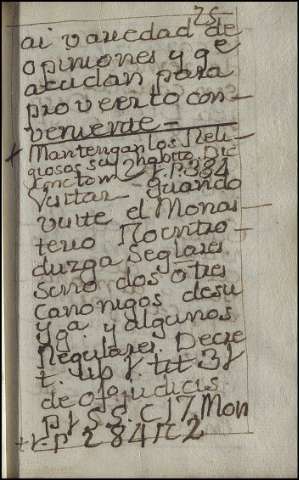 25
ai variedad de
opiniones y qe
acudan para
proveerto con-
veniente-
+ Mantengan los Reli-
giosos su habito Dic
tom 2 f. P. 334
Visitar - quando
visite el Monas
terio No intro-
duzga Seglares
sino dos o tres
canonigos desu
yga. y algunos
Regulares. Decre
t. up tit 31
de ofg judicis
c 17. Mon
P 284 n 2